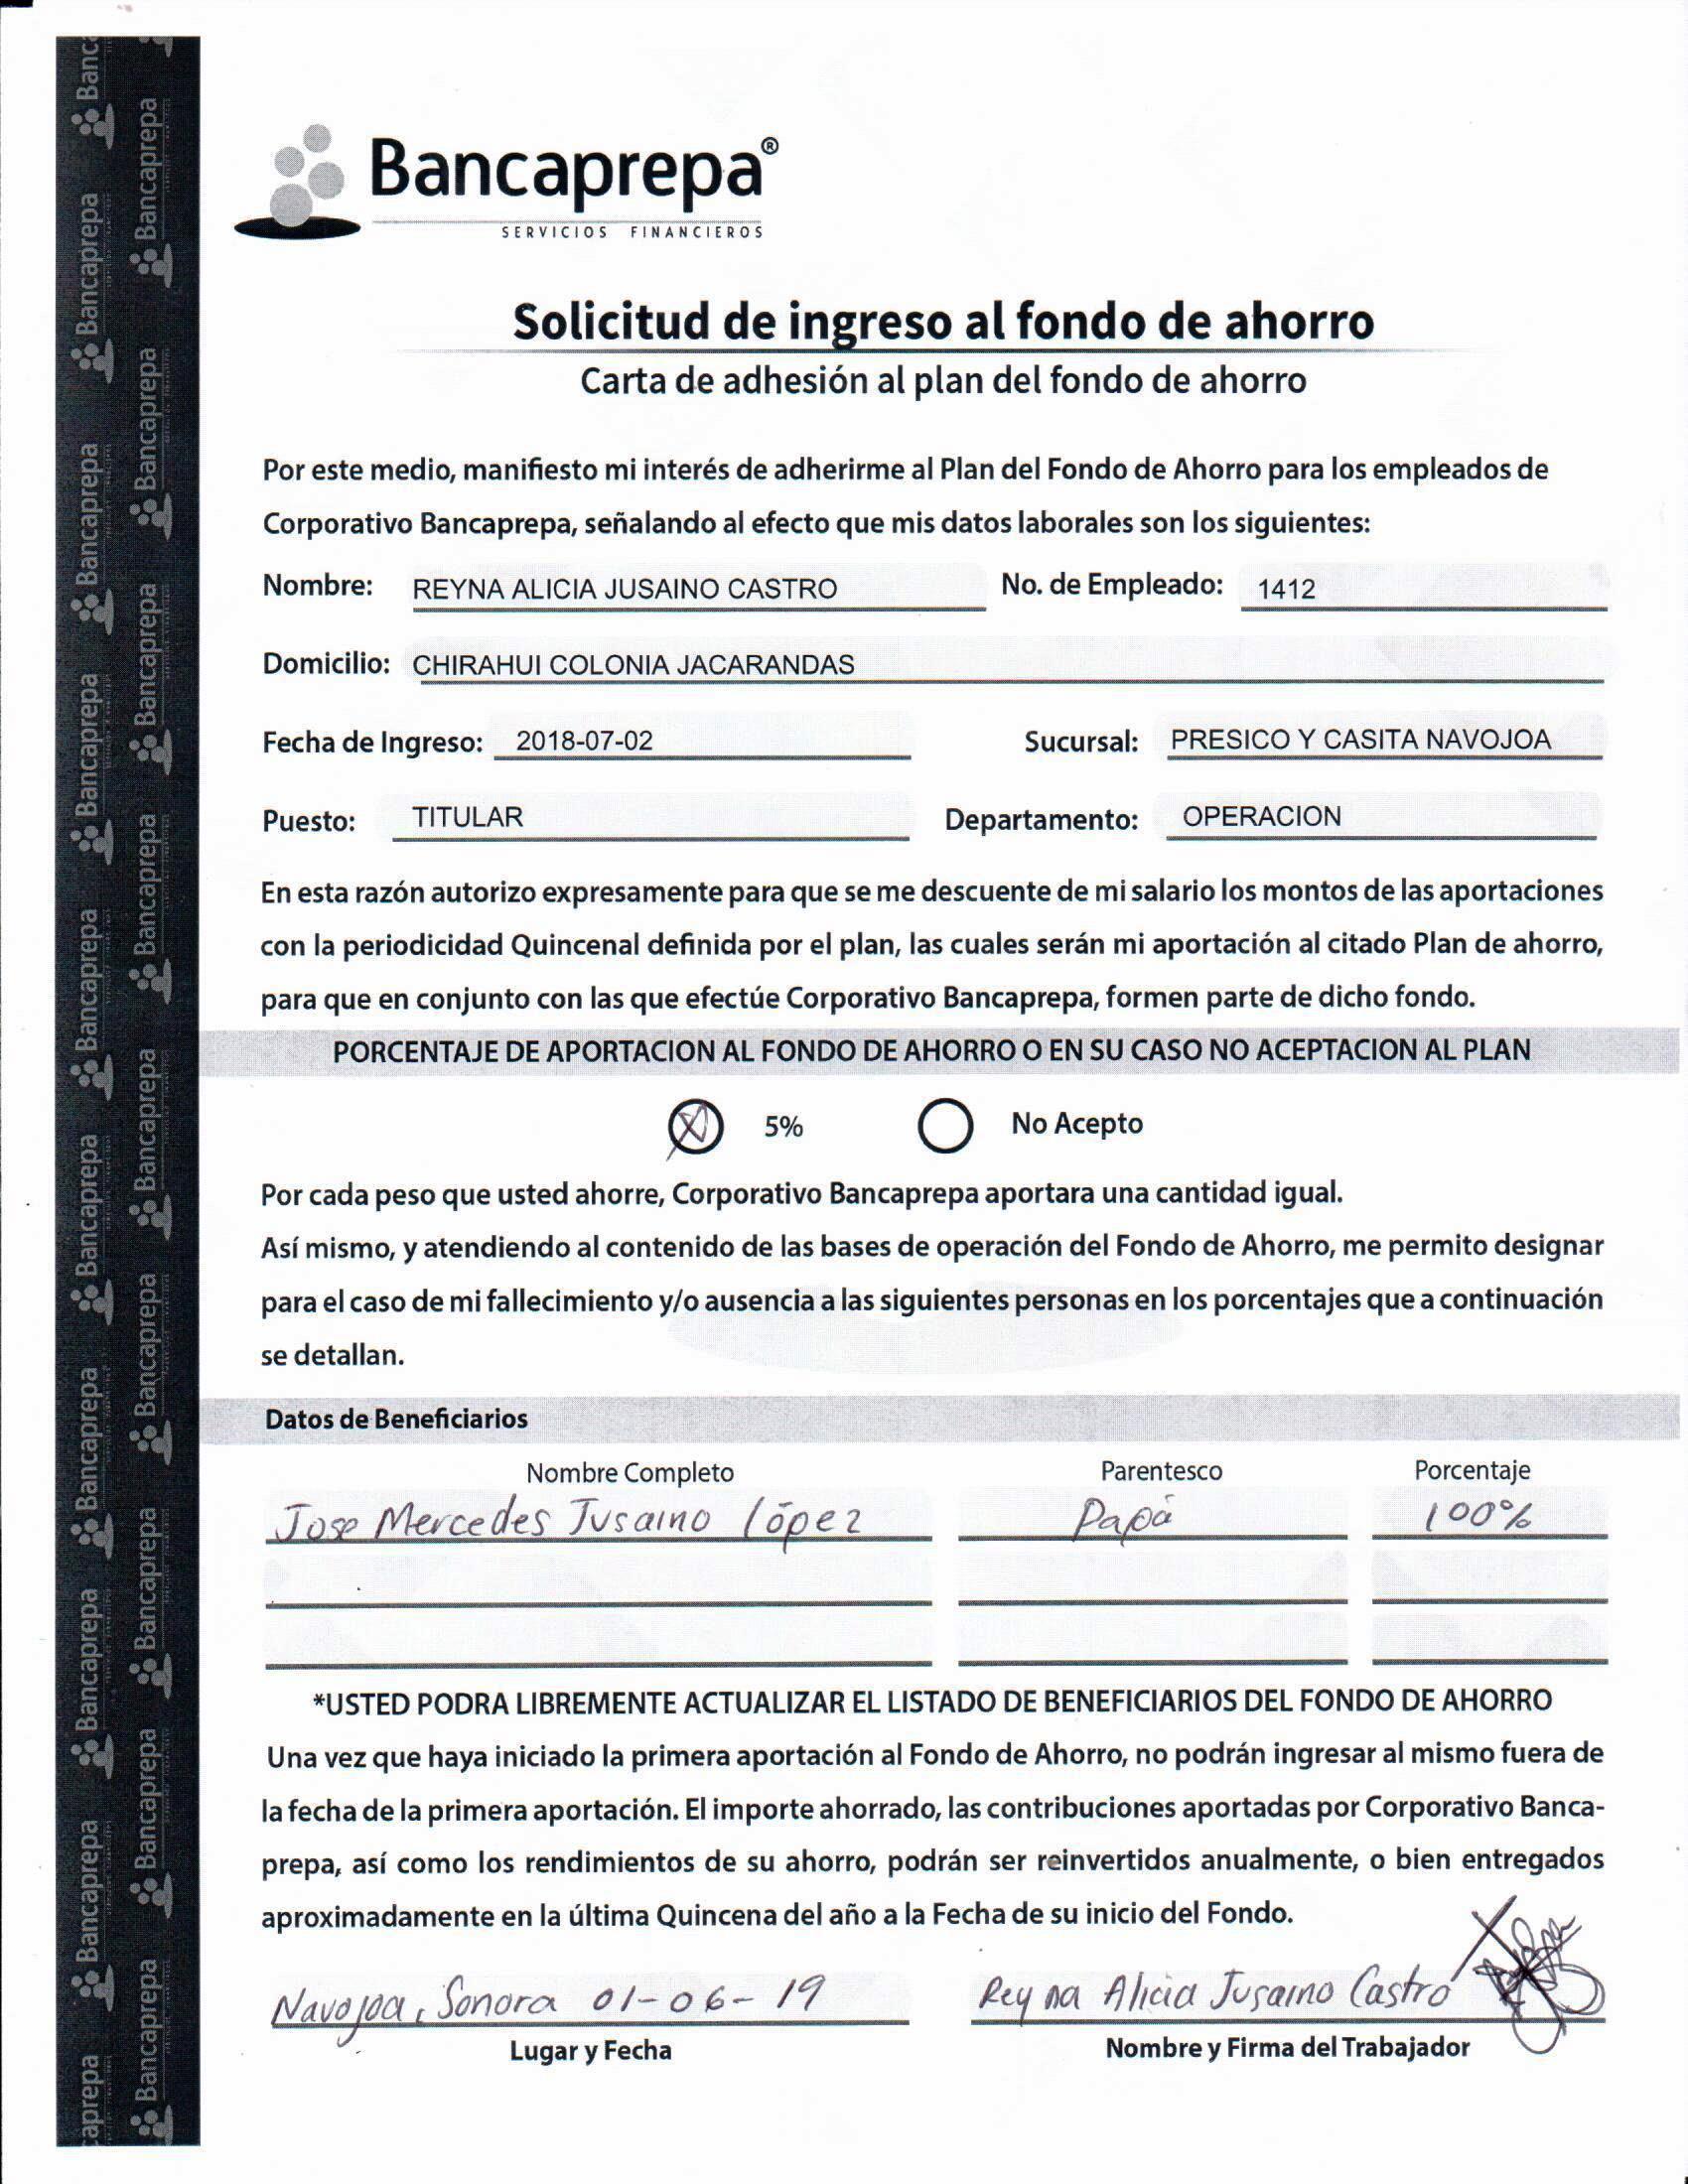 Bancaprepa®
SERVICIOS FINANCIEROS
Solicitud de ingreso al fondo de ahorro
Carta de adhesión al plan del fondo de ahorro
Por este medio, manifiesto mi interés de adherirme al Plan del Fondo de Ahorro para los empleados de
Corporativo Bancaprepa, señalando al efecto que mis datos laborales son los siguientes:
Nombre: REYNA ALICIA JUSAINO CASTRO No. de Empleado: 1412
Domicilio: CHIRAHUI COLONIA JACARANDAS
Fecha de Ingreso: 2018-07-02 Sucursal: PRESICO Y CASITA NAVOJOA
Puesto: TITULAR Departamento: OPERACION
En esta razón autorizo expresamente para que se me descuente de mi salario los montos de las aportaciones
con la periodicidad Quincenal definida por el plan, las cuales serán mi aportación al citado Plan de ahorro,
para que en conjunto con las que efectúe Corporativo Bancaprepa, formen parte de dicho fondo.
PORCENTAJE DE APORTACION AL FONDO DE AHORRO O EN SU CASO NO ACEPTACION AL PLAN
5% No Acepto
Por cada peso que usted ahorre, Corporativo Bancaprepa aportara una cantidad igual.
Así mismo, y atendiendo al contenido de las bases de operación del Fondo de Ahorro, me permito designar
para el caso de mi fallecimiento y/o ausencia a las siguientes personas en los porcentajes que a continuación
se detallan.
Datos de Beneficiarios
Nombre Completo Parentesco Porcentaje
Jose Mercedes Jusaino López Papá 100%
*USTED PODRA LIBREMENTE ACTUALIZAR EL LISTADO DE BENEFICIARIOS DEL FONDO DE AHORRO
Una vez que haya iniciado la primera aportación al Fondo de Ahorro, no podrán ingresar al mismo fuera de
la fecha de la primera aportación. El importe ahorrado, las contribuciones aportadas por Corporativo Banca-
prepa, así como los rendimientos de su ahorro, podrán ser reinvertidos anualmente, o bien entregados
aproximadamente en la última Quincena del año a la Fecha de su inicio del Fondo.
Navojoa, Sonora 01-06-19 Reyna Alicia Jusaino Castro
Lugar y Fecha Nombre y Firma del Trabajador